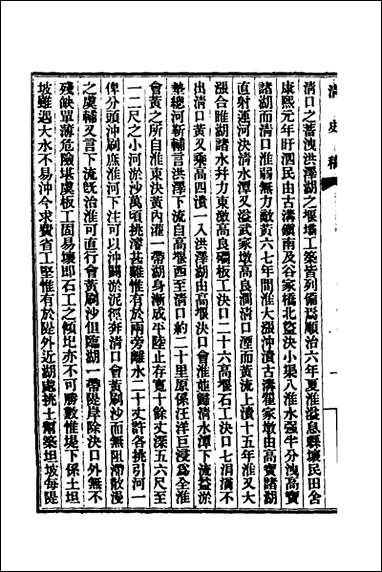 清史稿
清口之蓄洩洪澤湖之堰壩工築皆列備焉順治六年夏淮溢息縣壞民田舍
康熙元年盱泗民由古溝鎮南及谷家橋北盜決小渠八淮水強半分洩高寶
諸湖而清口淮弱無力敵黃六七年間淮大漲沖潰古溝翟家墩由高寶諸湖
直射運河決清水潭又溢武家墩高良澗清口湮而黃流上潰十五年淮又大
漲合睢湖諸水幷力東激高良澗板工決口二十六高堰石工決口七涓滴不
出清口黃又乘高四潰一入洪澤湖由高堰決口會淮竝歸清水潭下流益淤
墊總河靳輔言洪澤下流自高堰西至清口約二十里原係汪洋巨浸爲全淮
會黃之所自淮東決黃內灌一帶湖身漸成平陸止存寬十餘丈深五六尺至
一二尺之小河淤沙萬頃挑濬甚難惟有於兩旁離水二十丈許各挑引河一
俾分頭沖刷庶淮河下注可以沖闢淤泥徑奔清口會黃刷沙而無阻滯散漫
之虞輔又言下流旣治淮可直行會黃刷沙但臨湖一帶隄岸除決口外無不
殘缺單薄危險堪虞板工固易壞卽石工之傾圮亦不可勝數惟堤下係土坦
坡雖遇大水不易沖今求費省工堅惟有於隄外近湖處挑土幫築坦坡每隄